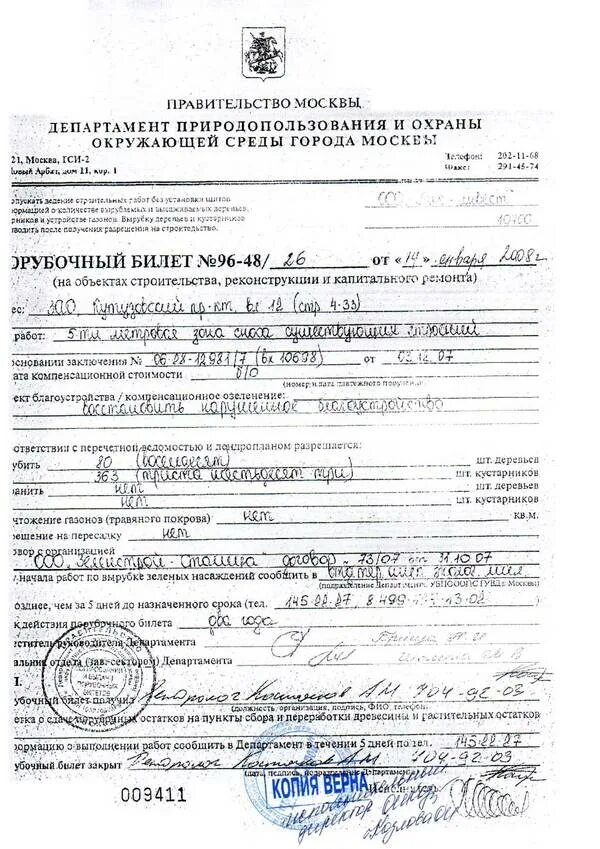 ПРАВИТЕЛЬСТВО МОСКВЫ
ДЕПАРТАМЕНТ ПРИРОДОПОЛЬЗОВАНИЯ И ОХРАНЫ
ОКРУЖАЮЩЕЙ СРЕДЫ ГОРОДА МОСКВЫ
21, Москва, ГСП-2 Телефон: 202-11-68
Новый Арбат, дом 11, кор. 1 Факс: 291-45-74
опускать ведение строительных работ без установки щитов
формацией о количестве вырубаемых и высаживаемых деревьев,
арников и устройстве газонов. Вырубку деревьев и кустарников
зводить после получения разрешения на строительство.
ОРУБОЧНЫЙ БИЛЕТ №96-48/ 26 от «14» января 2008г
(на объектах строительства, реконструкции и капитального ремонта)
рес: ЗАО, Кутузовский пр-кт, вл 12 (стр 4-33)
работ: 5-ти метровая зона сноса существующих строений
основании заключения № 06-08-12981/7 (вх 10698) от 03.12.07
лата компенсационной стоимости б/о
(номер и дата платежного поручения)
ект благоустройства / компенсационное озеленение:
восстановить нарушенное благоустройство
оответствии с перечетной ведомостью и дендропланом разрешается:
убить 80 (восемьдесят) шт. деревьев
363 (триста шестьдесят три) шт. кустарников
ранить нет шт. деревьев
нет шт. кустарников
ичтожение газонов (травяного покрова) нет кв.м.
решение на пересадку нет
говор с организацией
ООО договор 73/07 от 31.10.07
начала работ по вырубке зеленых насаждений сообщить в
(подразделение Департамента, УБПООПС ГУВД г. Москвы)
озднее, чем за 5 дней до назначенного срока (тел. 145-22-27, 8 499
к действия порубочного билета два года
еститель руководителя Департамента
альник отдела (зав. сектором) Департамента
убочный билет получил Дендролог А М 704-92-03
(должность, организация, подпись, ФИО, телефон)
етка о сдаче порубочных остатков на пункты сбора и переработки древесины и растительных остатков
формацию о выполнении работ сообщить в Департамент в течении 5 дней по тел. 145-22-27
убочный билет закрыт Дендролог А М 704-92-03
(дата, подпись, подразделение Департамента)
КОПИЯ ВЕРНА
Исполнитель
009411
директор